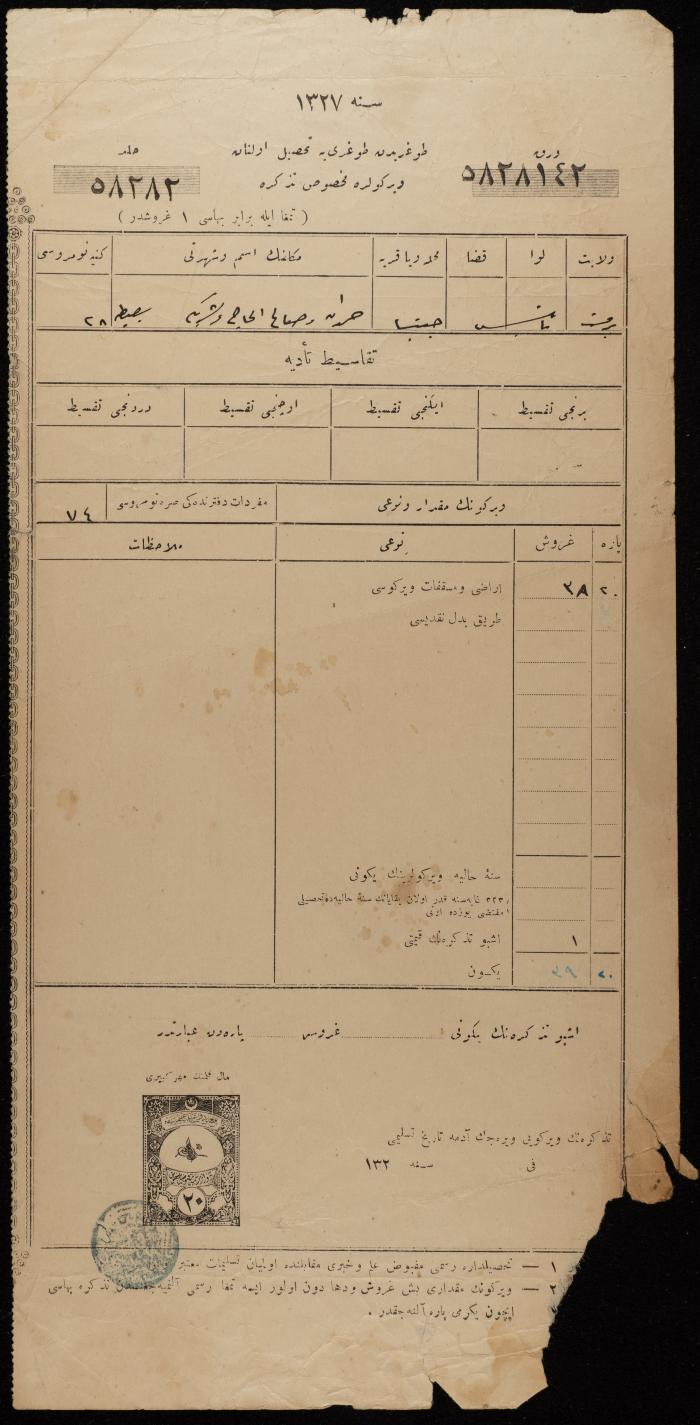 سنه ١٣٢٧
ورق
٥٨٢٨١٤٢
طوغریدن طوغری‌یه تحصیل اولنان
ویرکولره مخصوص تذکره
( تمغا ایله برابر بهاسی ١ غروشدر )
جلد
٥٨٢٨٢
ولایت لوا قضا محله ویا قریه مکلفك اسم وشهرتی کنیه نومروسی
بیروت نابلس ٢٨
تقاسیط تأدیه
برنجی تقسیط ایکنجی تقسیط اوچنجی تقسیط دردنجی تقسیط
ویرکونك مقدار ونوعی مفردات دفترنده‌کی صره نومروسی ٧٤
پاره غروش نوعی ملاحظات
٢٠ ٣٨ اراضی ومسقفات ویرکوسی
طریق بدل نقدیسی
سنهٔ حالیه ویرکولرینك یکونی
سنه‌سنه قدر اولان بقایانك سنهٔ حالیه‌ده تحصیلی
مقتضی یوزده اونی
١ اشبو تذکره‌نك قیمتی
٢٠ ٣٩ یکون
اشبو تذکره‌نك یکونی غروش پاره‌دن عبارتدر
مال قلمنك مهر کبیری
تذکره‌نك ویرکویی ویره‌جك آدمه تاریخ تسلیمی
فی سنه ١٣٢
٢٠
١ — تحصیلداره رسمی مقبوض علم وخبری مقابلنده اولمیان تسلیمات معتبر
٢ — ویرکونك مقداری بش غروش ودها دون اولور ایسه تمغا رسمی تذکره بهاسی
ایچون یکرمی پاره آلنه‌جقدر .